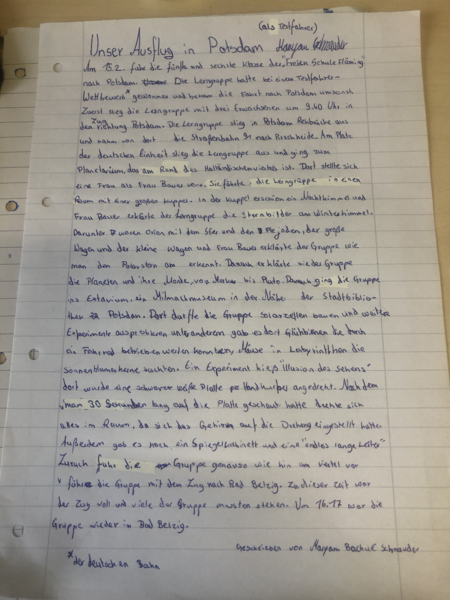 (als Testfahrer)
Unser Ausflug in Potsdam Maryam Schmauder
Am 15.2. fuhr die fünfte und sechste Klasse der "Freien Schule Fläming"
nach Potsdam. Die Lerngruppe hatte bei einem Testfahrer-
Wettbewerb* gewonnen und die Fahrt nach Potsdam umsonst
Zuerst stieg die Lerngruppe mit drei Erwachsenen um 9.40 Uhr in
den Zug richtung Potsdam. Die Lerngruppe stieg in Potsdam Rehbrücke aus
und nahm von dort die Straßenbahn nach Am Platz
der deutschen Einheit stieg die Lerngruppe aus und ging zum
Planetarium, das am Rand des Holländischenviertels ist. Dort stellte sich
eine Frau als Frau Bauer vor. Sie führte die Lerngruppe in einen
Raum mit einer großen Kuppel. In der Kuppel erschien ein Nachthimmel und
Frau Bauer erklärte der Lerngruppe die Sternbilder am Winterhimmel.
Darunter waren Orion mit dem Stier und den Plejaden, der große
Wagen und der kleine Wagen und Frau Bauer erklärte der Gruppe wie
man den Polarstern am erkennt. Danach erklärte sie der Gruppe
die Planeten und ihre Monde, von Merkur bis Pluto. Danach ging die Gruppe
ins Extavium, ein Mitmachmuseum in der Nähe der Stadtbiblio-
thek Potsdam. Dort durfte die Gruppe Solarzellen bauen und weitere
Experimente ausprobieren unter anderem gab es dort Glühbirnen die durch
ein Fahrrad betrieben werden konnten, Mäuse in Labyrinthen die
sonnenblumenkerne suchten. Ein Experiment hieß "Illusion des Sehens"
dort wurde eine schwarze weiße Platte per Handkurbel angedreht. Nachdem
man 30 Sekunden lang auf die Platte geschaut hatte drehte sich
alles im Raum, da sich das Gehirn auf die Drehung eingestellt hatte.
Außerdem gab es noch ein Spiegelkabinett und eine "endlos lange Leiter"
Zurück fuhr die Gruppe genauso wie hin am viertel vor
fuhr die Gruppe mit dem Zug nach Bad Belzig. Zu dieser Zeit war
der Zug voll und viele der Gruppe mussten stehen. Um 16.17 war die
Gruppe wieder in Bad Belzig.
Geschrieben von Maryam Schmauder
*der deutschen Bahn